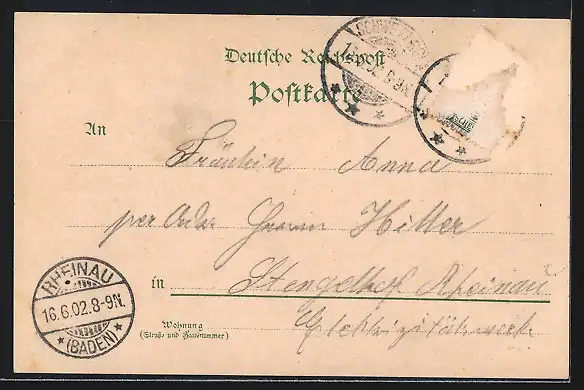 Deutsche Reichspost
Postkarte
An Fräulein Anna
per Adr. Herrn Hitter
in Stengelhof Rheinau
Elektrizitätswerk
Wohnung
(Straße und Hausnummer)
RHEINAU
16.6.02.8-9N.
(BADEN)